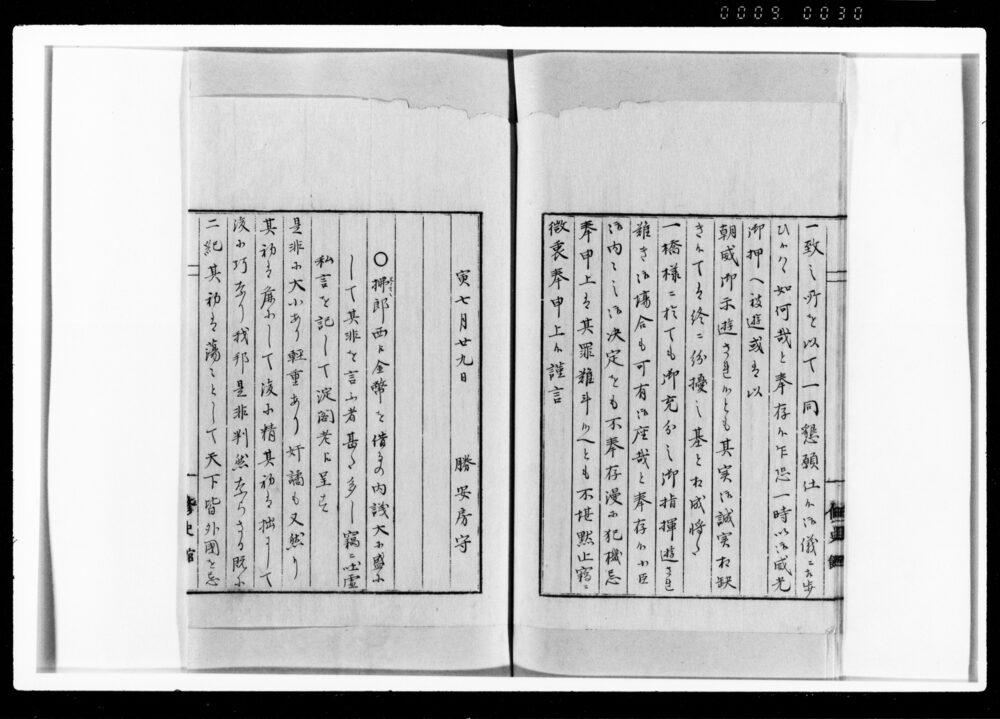 0009 0030
一致之所を以て一同懇願仕候御儀ニ而歩
ひ候へハ如何哉と奉存候乍恐一時以御威光
御押へ被遊或ハ以
朝威御示遊され候とも其実御誠実相缺
き候てハ終ニ紛擾之基と相成将又
一橋様ニ於ても御充分之御指揮遊され
難き御場合も可有御座哉と奉存候小臣
御内々之御決定をも不奉存漫に犯機忌
奉申上ハ其罪難斗候へとも不堪黙止竊ニ
微衷奉申上候謹言
寅七月廿九日
勝安房守
〇拂郎西ト金幣を借るの内議大に盛に
して其非を言ふ者甚た多し竊ニ吐虚
私言を記して淀閣老に呈す
是非に大小あり軽重あり奸譎も又然り
其初ハ麁にして後に精其初ハ拙にして
後に巧なり我邦是非判然ならさる既に
二紀其初ハ蕩々として天下皆外国を忌
修史館